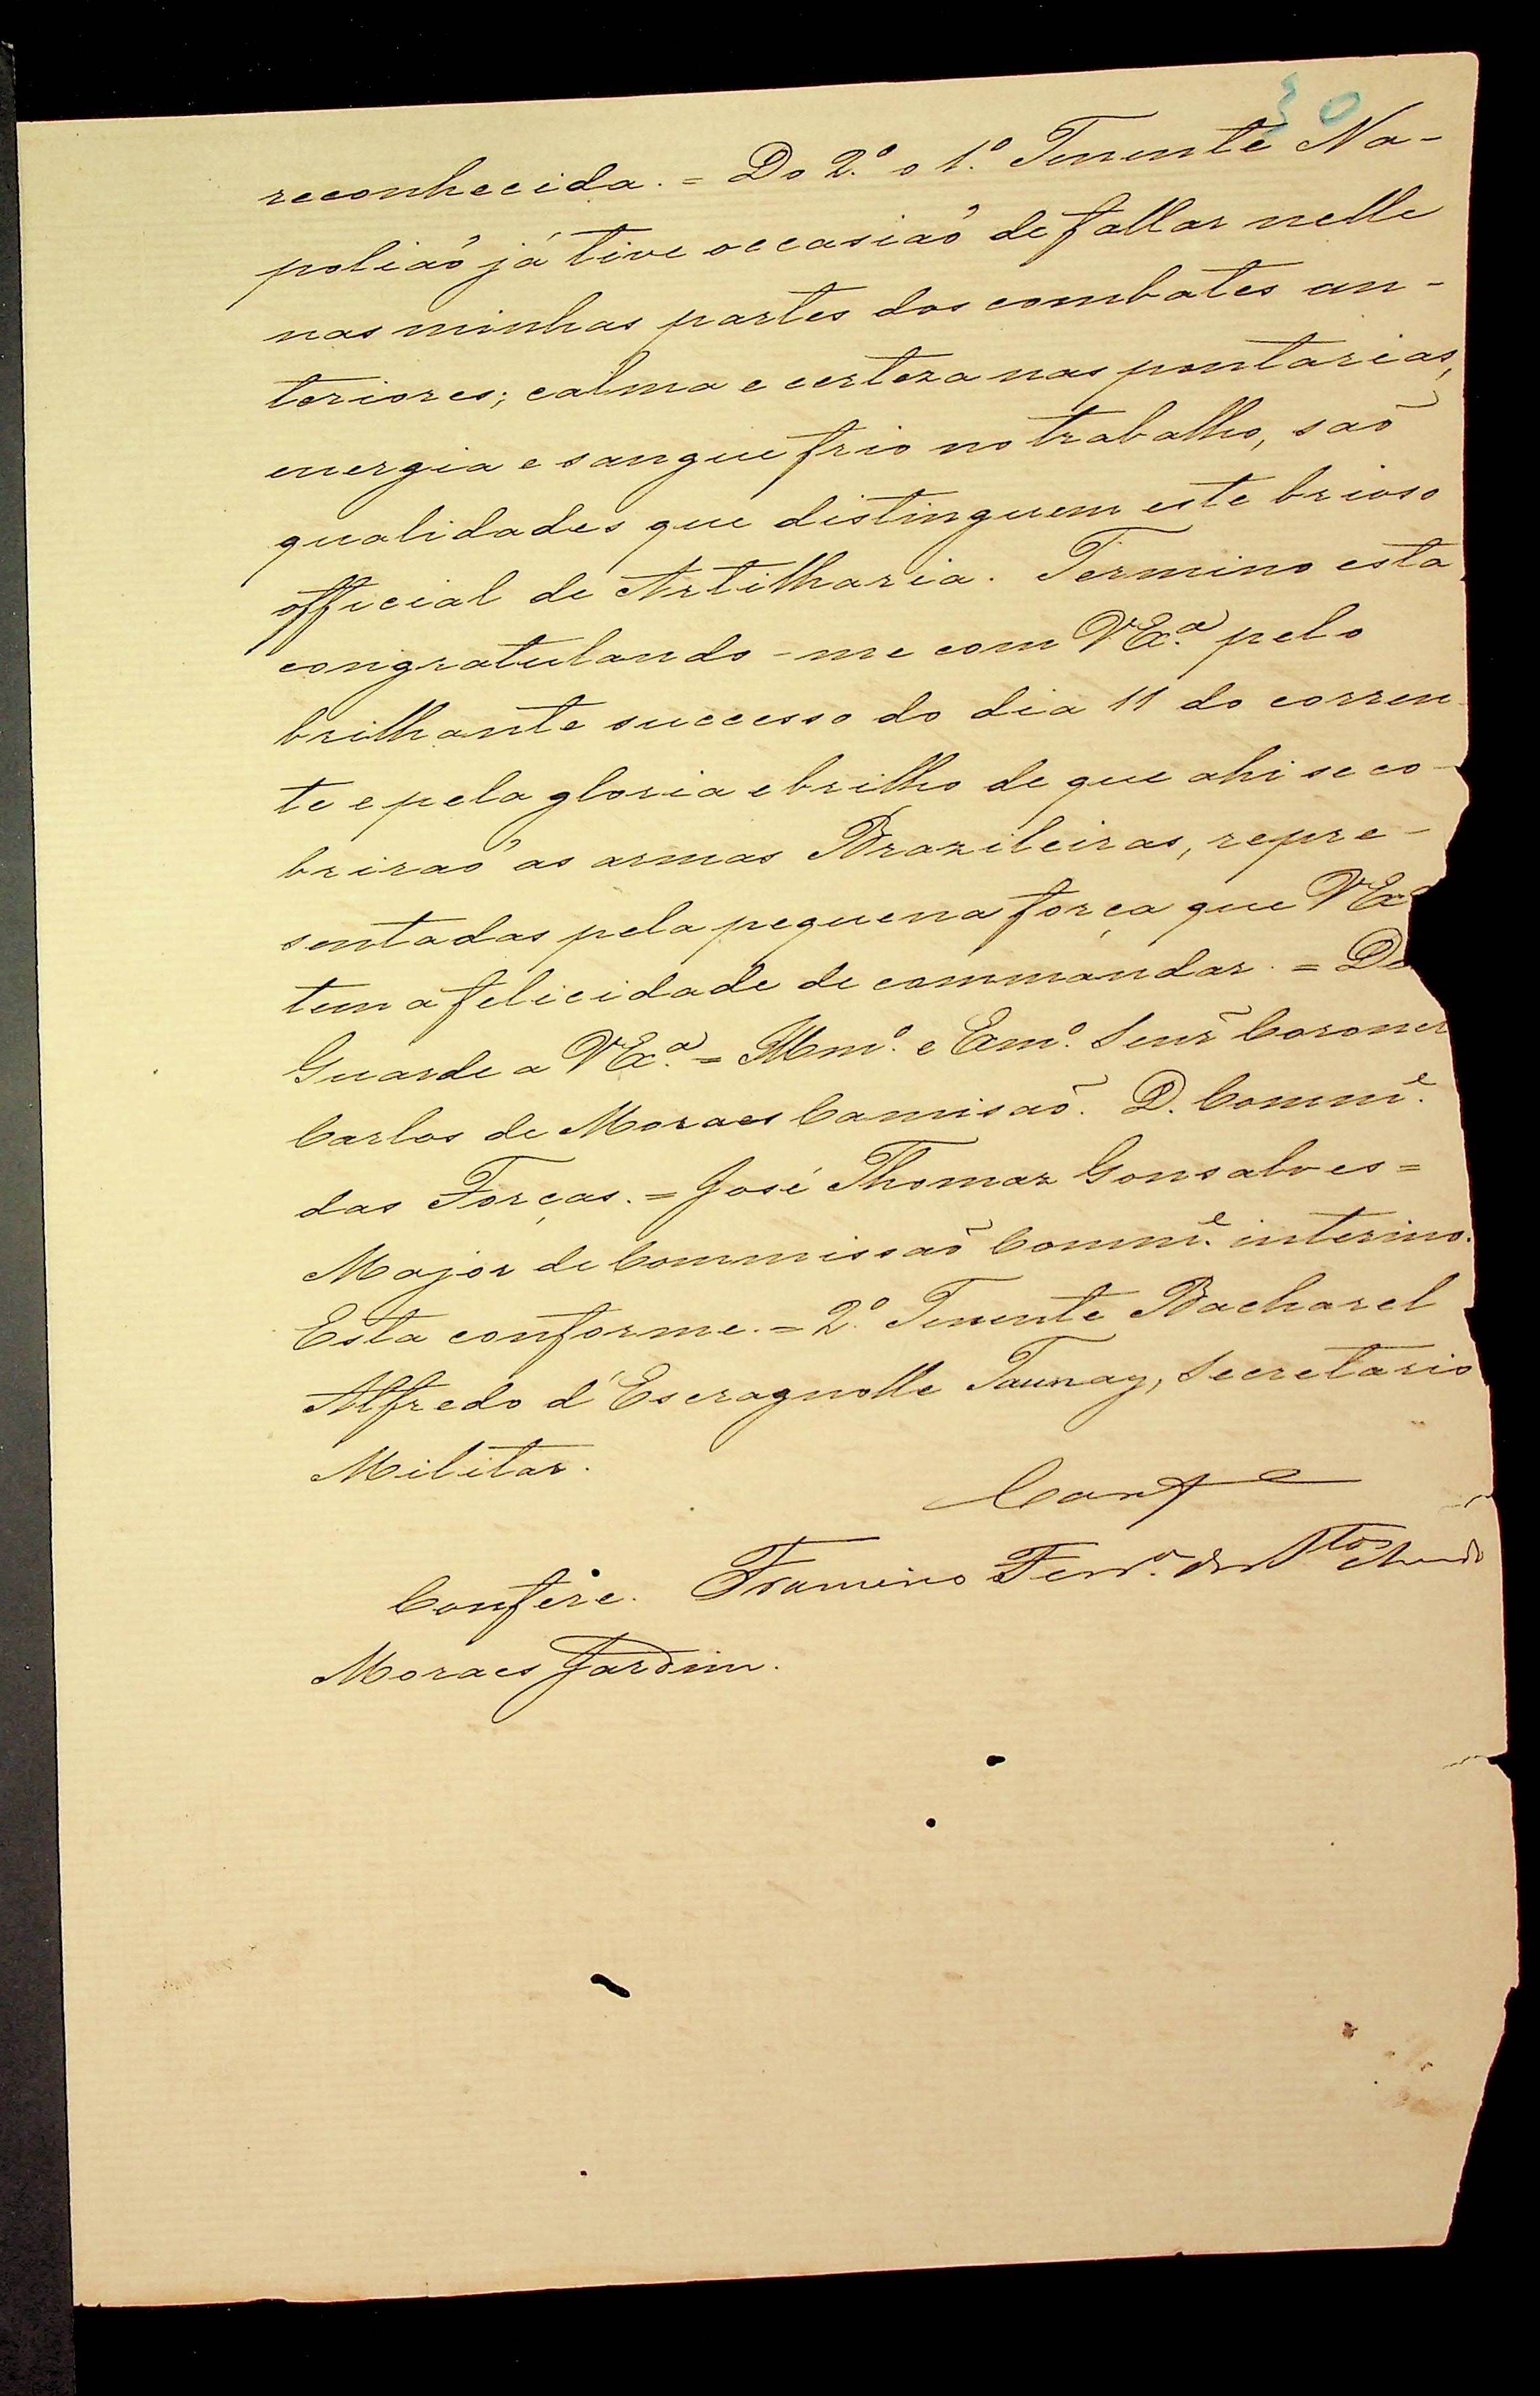 30
reconhecida. = Do 2.º o 1.º Tenente Na-
polião já tive occasião de fallar nelle
nas minhas partes dos combates an-
teriores; calma e certeza nas pontarias,
energia e sangue frio no trabalho, saõ
qualidades que distinguem este brioso
official de Artilharia. Termino esta
congratulando-me com VEx.ª pelo
brilhante successo do dia 11 do corren
te e pela gloria e brilho de que ahi se co-
brirão as armas Brazileiras, repre-
sentadas pela pequena força que VEx
tem a felicidade de commandar. = De
Guarde a VEx.ª = Illmº. e Exmº. Senr̃ Coronel
Carlos de Moraes Camisaõ. D. Comm.e
das Forças. = José Thomaz Gonsalves =
Major de Commissaõ Comm.e interino.
Esta conforme. = 2.º Tenente Bacharel
Alfredo d'Escragnolle Taunay, Secretario
Militar.
Conf.e
Confere. Ferr.ª
Moraes Jardim.